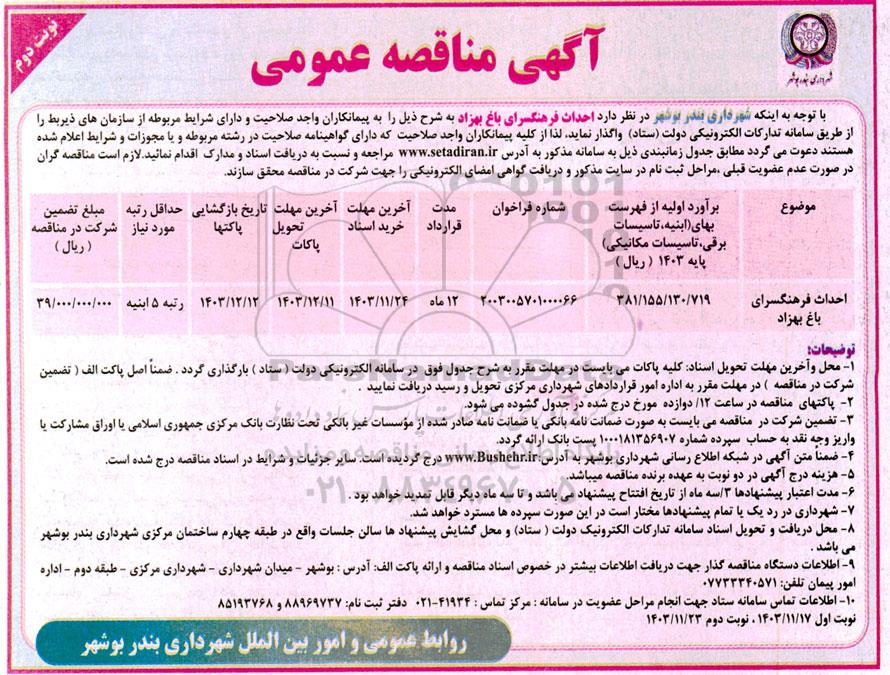 نوبت دوم
شهرداری بندر بوشهر
آگهی مناقصه عمومی
با توجه به اینکه شهرداری بندر بوشهر در نظر دارد احداث فرهنگسرای باغ بهزاد به شرح ذیل را به پیمانکاران واجد صلاحیت و دارای شرایط مربوطه از سازمان های ذیربط را
از طریق سامانه تدارکات الکترونیکی دولت (ستاد) واگذار نماید، لذا از کلیه پیمانکاران واجد صلاحیت که دارای گواهینامه صلاحیت در رشته مربوطه و یا مجوزات و شرایط اعلام شده
هستند دعوت می گردد مطابق جدول زمانبندی ذیل به سامانه مذکور به آدرس www.setadiran.ir مراجعه و نسبت به دریافت اسناد و مدارک اقدام نمائید.لازم است مناقصه گران
در صورت عدم عضویت قبلی ،مراحل ثبت نام در سایت مذکور و دریافت گواهی امضای الکترونیکی را جهت شرکت در مناقصه محقق سازند.
موضوع | برآورد اولیه از فهرست بهای(ابنیه،تاسیسات برقی،تاسیسات مکانیکی) پایه ۱۴۰۳ ( ریال ) | شماره فراخوان | مدت قرارداد | آخرین مهلت خرید اسناد | آخرین مهلت تحویل پاکات | تاریخ بازگشایی پاکتها | حداقل رتبه مورد نیاز | مبلغ تضمین شرکت در مناقصه ( ریال )
احداث فرهنگسرای باغ بهزاد | ۳۸۱/۱۵۵/۱۳۰/۷۱۹ | ۲۰۰۳۰۰۵۷۰۱۰۰۰۰۶۶ | ۱۲ ماه | ۱۴۰۳/۱۱/۲۴ | ۱۴۰۳/۱۲/۱۱ | ۱۴۰۳/۱۲/۱۲ | رتبه ۵ ابنیه | ۳۹/۰۰۰/۰۰۰/۰۰۰
توضیحات:
۱- محل وآخرین مهلت تحویل اسناد: کلیه پاکات می بایست در مهلت مقرر به شرح جدول فوق در سامانه الکترونیکی دولت ( ستاد ) بارگذاری گردد . ضمناً اصل پاکت الف ( تضمین
شرکت در مناقصه ) در مهلت مقرر به اداره امور قراردادهای شهرداری مرکزی تحویل و رسید دریافت نمایید .
۲- پاکتهای مناقصه در ساعت ۱۲/ دوازده مورخ درج شده در جدول گشوده می شود.
۳- تضمین شرکت در مناقصه می بایست به صورت ضمانت نامه بانکی یا ضمانت نامه صادر شده از مؤسسات غیر بانکی تحت نظارت بانک مرکزی جمهوری اسلامی یا اوراق مشارکت یا
واریز وجه نقد به حساب سپرده شماره ۱۰۰۰۱۸۱۳۵۶۹۰۷ پست بانک ارائه گردد.
۴- ضمناً متن آگهی در شبکه اطلاع رسانی شهرداری بوشهر به آدرس: www.Bushehr.ir درج گردیده است. سایر جزئیات و شرایط در اسناد مناقصه درج شده است.
۵- هزینه درج آگهی در دو نوبت به عهده برنده مناقصه میباشد.
۶- مدت اعتبار پیشنهادها ۳/سه ماه از تاریخ افتتاح پیشنهاد می باشد و تا سه ماه دیگر قابل تمدید خواهد بود .
۷- شهرداری در رد یک یا تمام پیشنهادها مختار است در این صورت سپرده ها مسترد خواهد شد.
۸- محل دریافت و تحویل اسناد سامانه تدارکات الکترونیک دولت ( ستاد) و محل گشایش پیشنهاد ها سالن جلسات واقع در طبقه چهارم ساختمان مرکزی شهرداری بندر بوشهر
می باشد .
۹- اطلاعات دستگاه مناقصه گذار جهت دریافت اطلاعات بیشتر در خصوص اسناد مناقصه و ارائه پاکت الف: آدرس : بوشهر - میدان شهرداری - شهرداری مرکزی - طبقه دوم - اداره
امور پیمان تلفن: ۰۷۷۳۳۳۴۰۵۷۱
۱۰- اطلاعات تماس سامانه ستاد جهت انجام مراحل عضویت در سامانه : مرکز تماس : ۴۱۹۳۴-۰۲۱ دفتر ثبت نام: ۸۸۹۶۹۷۳۷ و ۸۵۱۹۳۷۶۸
نوبت اول ۱۴۰۳/۱۱/۱۷ ، نوبت دوم ۱۴۰۳/۱۱/۲۳
روابط عمومی و امور بین الملل شهرداری بندر بوشهر